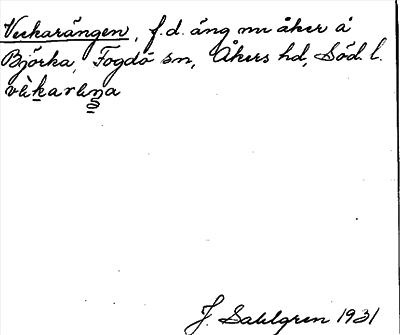 Veckarängen, f.d. äng nu åker å
Björka, Fogdö sn, Åkers hd, Söd. l.
J. Sahlgren 1931